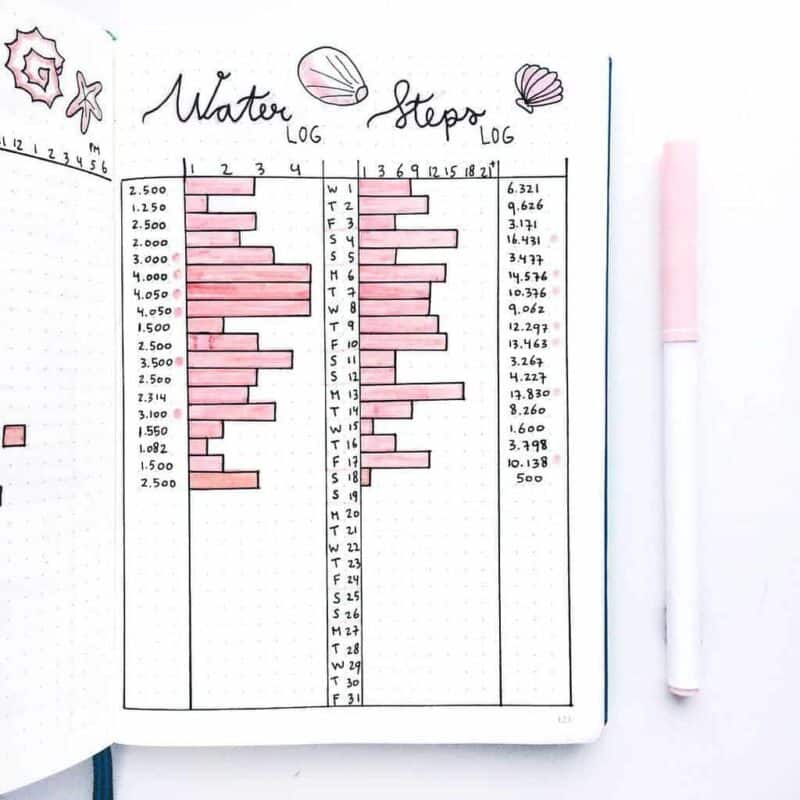 1 12 1 2 3 4 5 6
PM
Water
LOG
Steps
LOG
1 2 3 4 1 3 6 9 12 15 18 21+
2.500 W 1 6.321
1.250 T 2 9.626
2.500 F 3 3.171
2.000 S 4 16.431
3.000 S 5 3.477
4.000 M 6 14.576
4.050 T 7 10.376
4.050 W 8 9.062
1.500 T 9 12.297
2.500 F 10 13.463
3.500 S 11 3.267
2.500 S 12 4.227
2.314 M 13 17.830
3.100 T 14 8.260
1.550 W 15 1.600
1.082 T 16 3.798
1.500 F 17 10.138
2.500 S 18 500
S 19
M 20
T 21
W 22
T 23
F 24
S 25
S 26
M 27
T 28
W 29
T 30
F 31
121